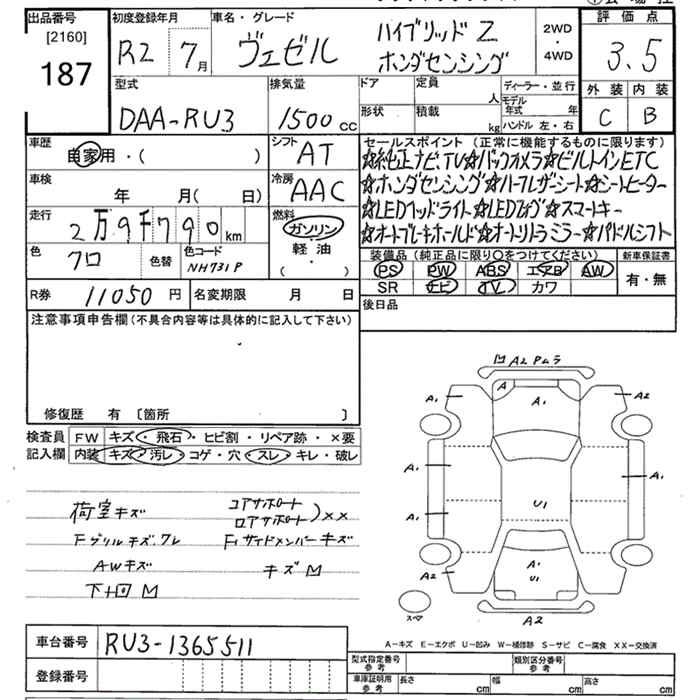 出品番号 初度登録年月 車名・グレード 評価点
[2160] ハイブリッド Z 2WD
187 R2 7月 ヴェゼル ホンダセンシング ・4WD 3.5
型式 排気量 ドア 定員 人 ディーラー・並行 外装 内装
DAA-RU3 1500cc 形状 積載 kg モデル年式 年 C B
ハンドル 左・右
車歴 自家用・( ) シフト AT セールスポイント (正常に機能するものに限ります)
☆純正ナビTV☆バックカメラ☆ビルトインETC
車検 年 月( 日) 冷房 AAC ☆ホンダセンシング☆ハーフレザーシート☆シートヒーター
走行 2万9千790km 燃料 ガソリン ☆LEDヘッドライト☆LEDフォグ☆スマートキー
軽油 ☆オートブレーキホールド☆オートリトラミラー☆パドルシフト
色 クロ 色替 色コード NH731P ・( )
装備品 (純正品に限り○をつけてください) 新車保証書
PS PW ABS エアB AW 有・無
SR ナビ TV カワ
R券 11050円 名変期限 月 日 後日品
注意事項申告欄 (不具合内容等は具体的に記入して下さい)
修復歴 有 〔箇所 〕
検査員 FW キズ・飛石・ヒビ割・リペア跡・×要
記入欄 内装 キズ・汚レ・コゲ・穴・スレ・キレ・破レ
荷室キズ コアサポート
ロアサポート ) ××
Fグリルキズ.ワレ Fiサイドメンバーキズ
AWキズ キズM
下廻M
凹A2Pムラ
A
A1 A1 A2
A1 A1
A1 U1
A1
A2 U1
スペア A2
A-キズ E-エクボ U-凹み W-補修跡 S-サビ C-腐食 XX-交換済
車台番号 RU3-1365511
登録番号
型式指定番号 参考 類別区分番号 参考
車庫証明用 参考 長さ cm 幅 cm 高さ cm